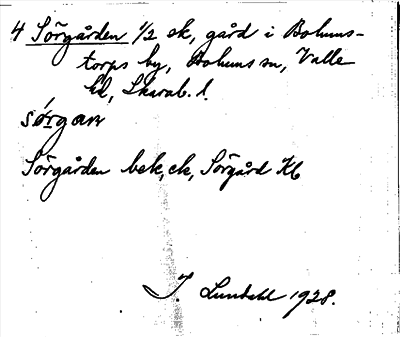 4 Sörgården 1/2 ek, gård i Bolums-
torps by, Bolums sn, Valle
hd, Skarab. l.
sørgan
Sörgården bek, ek, Sörgård Kb
I. Lundahl 1928.